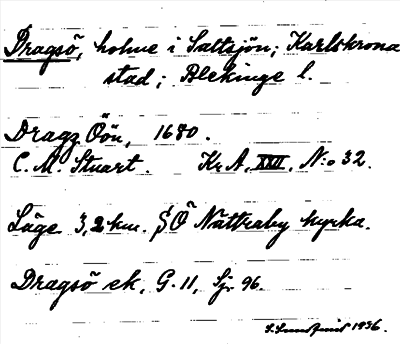 Dragsö, holme i Saltsjön; Karlskrona
stad; Blekinge l.
Dragz Öön, 1680.
C. M. Stuart. Kr. A. XXII. N:o 32.
Läge 3,2 km. SÖ Nättraby kyrka.
Dragsö ek. G. 11, Sjr 96.
1936.